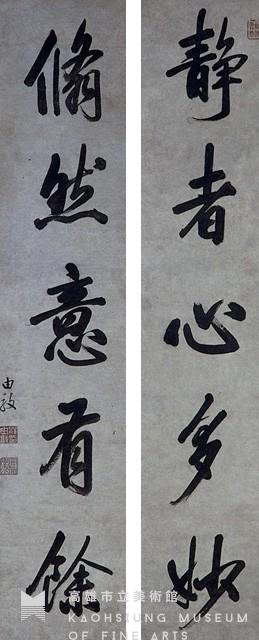 静者心多妙
翛然意有餘
由敦
高雄市立美術館
KAOHSIUNG MUSEUM
OF FINE ARTS